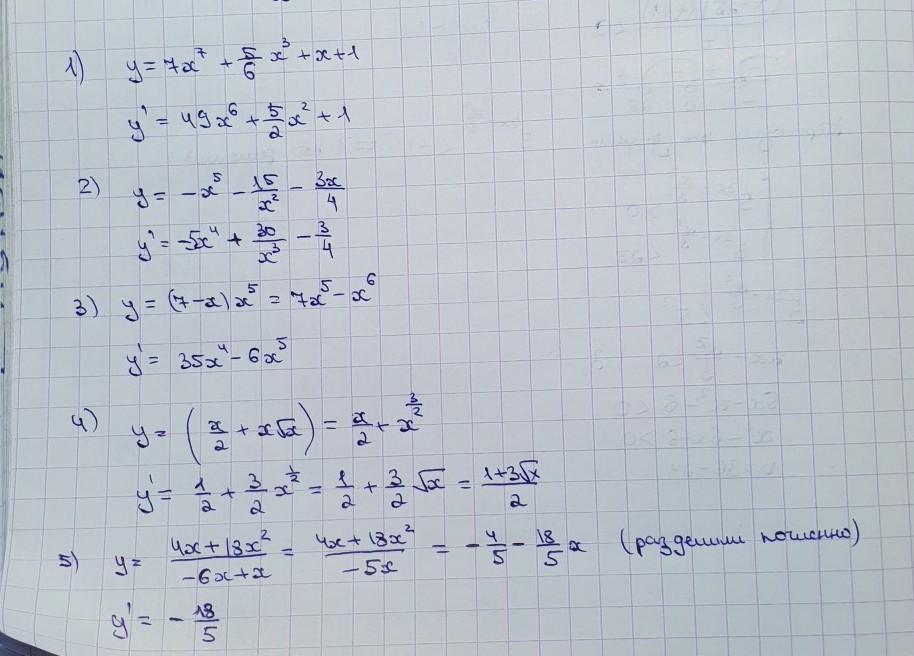 1) y = 7x⁷ + 5/6 x³ + x + 1
y' = 49x⁶ + 5/2 x² + 1
2) y = -x⁵ - 15/x² - 3x/4
y' = -5x⁴ + 30/x³ - 3/4
3) y = (7-x)x⁵ = 7x⁵ - x⁶
y' = 35x⁴ - 6x⁵
4) y = (x/2 + x√x) = x/2 + x^(3/2)
y' = 1/2 + 3/2 x^(1/2) = 1/2 + 3/2 √x = (1+3√x)/2
5) y = (4x+18x²)/(-6x+x) = (4x+18x²)/(-5x) = -4/5 - 18/5 x (разделили почленно)
y' = -18/5